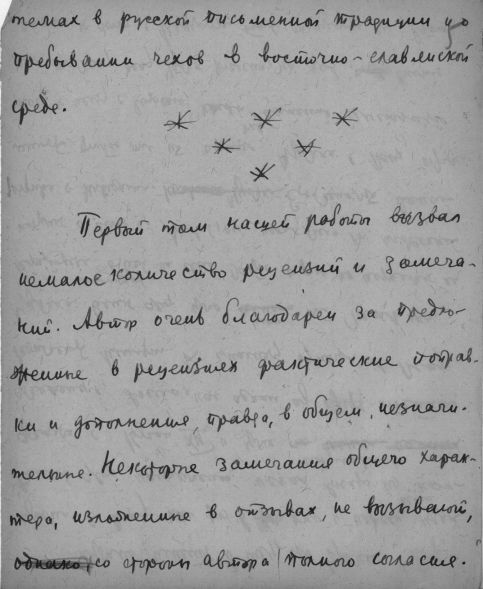 темах в русской письменной традиции и о
пребывании чехов в восточно-славянской
среде.
Первый том нашей работы вызвал
немалое количество рецензий и замеча-
ний. Автор очень благодарен за предло-
женные в рецензиях фактические поправ-
ки и дополнения, правда, в общем, незначи-
тельные. Некоторые замечания общего харак-
тера, изложенные в отзывах, не вызывают,
однако, со стороны автора полного согласия.